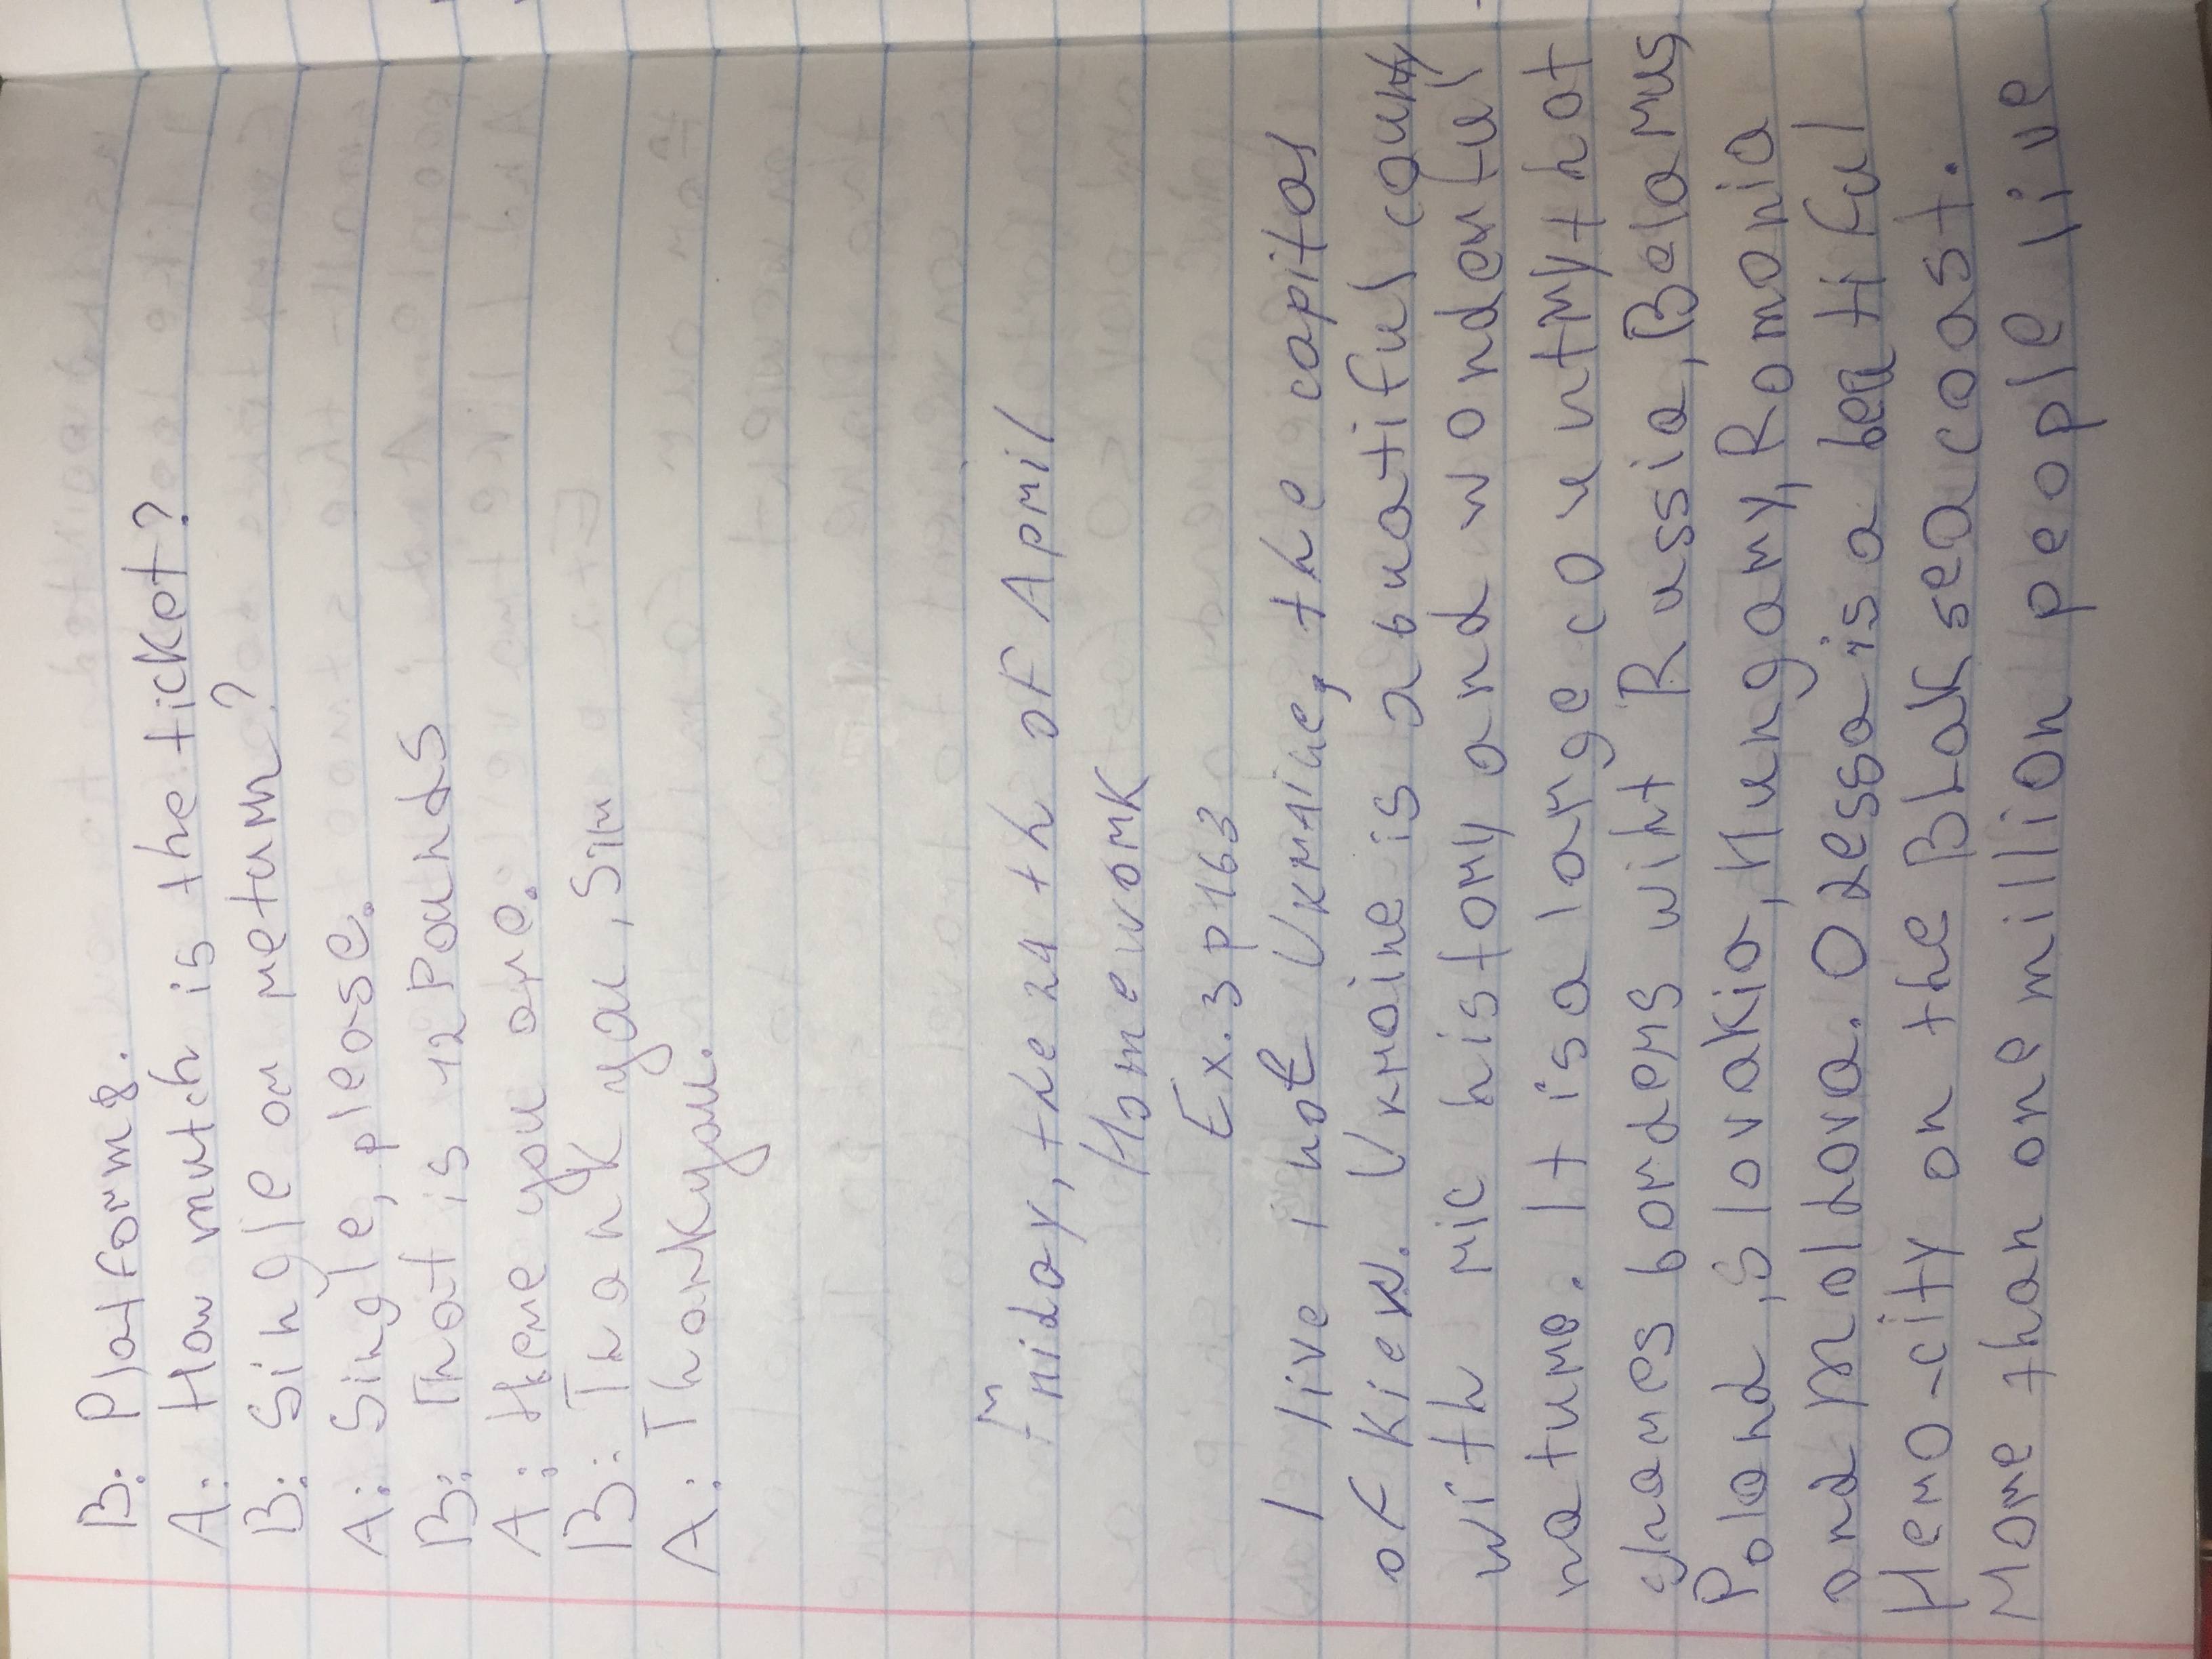 B: Platform 8.
A: How mutch is the ticket?
B: Single or return?
A: Single, please.
B: That is 12 Pounds
A: Here you are.
B: Thank you, Sir
A: Thank you.
Friday, the 24 th of April
Homework
Ex. 3 p 163
I live i not Ukraine, the capital
of Kiew. Ukraine is a buatiful county
with ric history and wonderful
nature. It is a large country t hat
shares borders wiht Russia, Belarus
Poland, Slovakia, Hungary, Romania
and Moldova. Odessa is a beatiful
Hero-city on the Blak sea coast.
More than one million people live